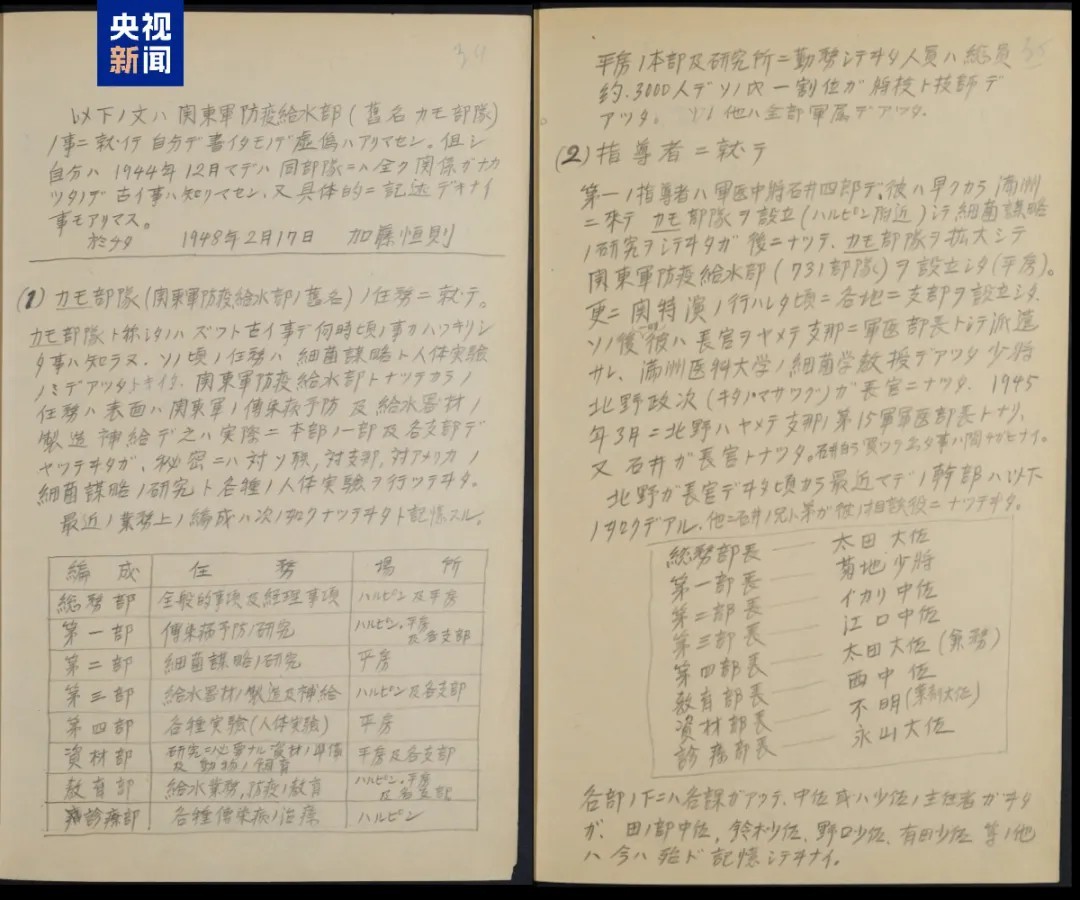 央视
新闻
34
以下ノ文ハ関東軍防疫給水部(舊名カモ部隊)
ノ事ニ就イテ自分デ書イタモノデ虚偽ハアリマセン。但シ
自分ハ1944年12月マデハ同部隊ニハ全ク関係ガナカ
ツタノデ古イ事ハ知リマセン、又具体的ニ記述デキナイ
事モアリマス。
於チタ 1948年2月17日 加藤恒則
(1) カモ部隊(関東軍防疫給水部ノ舊名)ノ任務ニ就テ。
カモ部隊ト称シタノハズツト古イ事デ何時頃ノ事カハツキリシ
タ事ハ知ラヌ。ソノ頃ノ任務ハ細菌謀略ト人体実験
ノミデアツタトキイタ。関東軍防疫給水部トナツテカラノ
任務ハ表面ハ関東軍ノ傳染病予防及給水器材ノ
製造補給デ之ハ実際ニ本部ノ一部及各支部デ
ヤツテヰタガ、秘密ニハ対ソ聯,対支那,対アメリカノ
細菌謀略ノ研究ト各種ノ人体実験ヲ行ツテヰタ。
最近ノ業務上ノ編成ハ次ノ如クナツテヰタト記憶スル。
編成 任務 場所
総務部 全般的事項及経理事項 ハルピン及平房
第一部 傳染病予防ノ研究 ハルピン,平房及各支部
第二部 細菌謀略ノ研究 平房
第三部 給水器材ノ製造及補給 ハルピン及各支部
第四部 各種実験(人体実験) 平房
資材部 研究ニ必要ナル資材ノ準備及動物ノ飼育 平房及各支部
教育部 給水業務,防疫ノ教育 ハルピン,平房及各支部
診療部 各種傳染病ノ治療 ハルピン
35
平房ノ本部及研究所ニ勤務シテヰタ人員ハ総員
約3000人デソノ内一割位ガ将校ト技師デ
アツタ。ソノ他ハ全部軍属デアツタ。
(2) 指導者ニ就テ
第一ノ指導者ハ軍医中将石井四郎デ、彼ハ早クカラ満洲
ニ来テカモ部隊ヲ設立(ハルピン附近)シテ細菌謀略
ノ研究ヲシテヰタガ後ニナツテ、カモ部隊ヲ拡大シテ
関東軍防疫給水部(731部隊)ヲ設立シタ(平房)。
更ニ関特演ノ行ハレタ頃ニ各地ニ支部ヲ設立シタ.
ソノ後彼ハ長官ヲヤメテ支那ニ軍医部長トシテ派遣
サレ、満洲医科大学ノ細菌学教授デアツタ少将
北野政次(キタノマサツグ)ガ長官ニナツタ. 1945
年3月ニ北野ハヤメテ支那ノ第15軍軍医部長トナリ、
又石井ガ長官トナツタ。
北野ガ長官デヰタ頃カラ最近マデノ幹部ハ以下
ノ如クデアル.他ニ石井ノ兄ト弟ガ彼ノ相談役ニナツテヰタ。
総務部長 — 太田大佐
第一部長 — 菊地少将
第二部長 — イカリ中佐
第三部長 — 江口中佐
第四部長 — 太田大佐(兼務)
教育部長 — 西中佐
資材部長 — 不明(薬剤大佐)
診療部長 — 永山大佐
各部ノ下ニハ各課ガアツテ、中佐或ハ少佐ノ主任者ガヰタ
ガ、田ノ部中佐,鈴木少佐、野口少佐、有田少佐等ノ他
ハ今ハ殆ド記憶シテヰナイ。